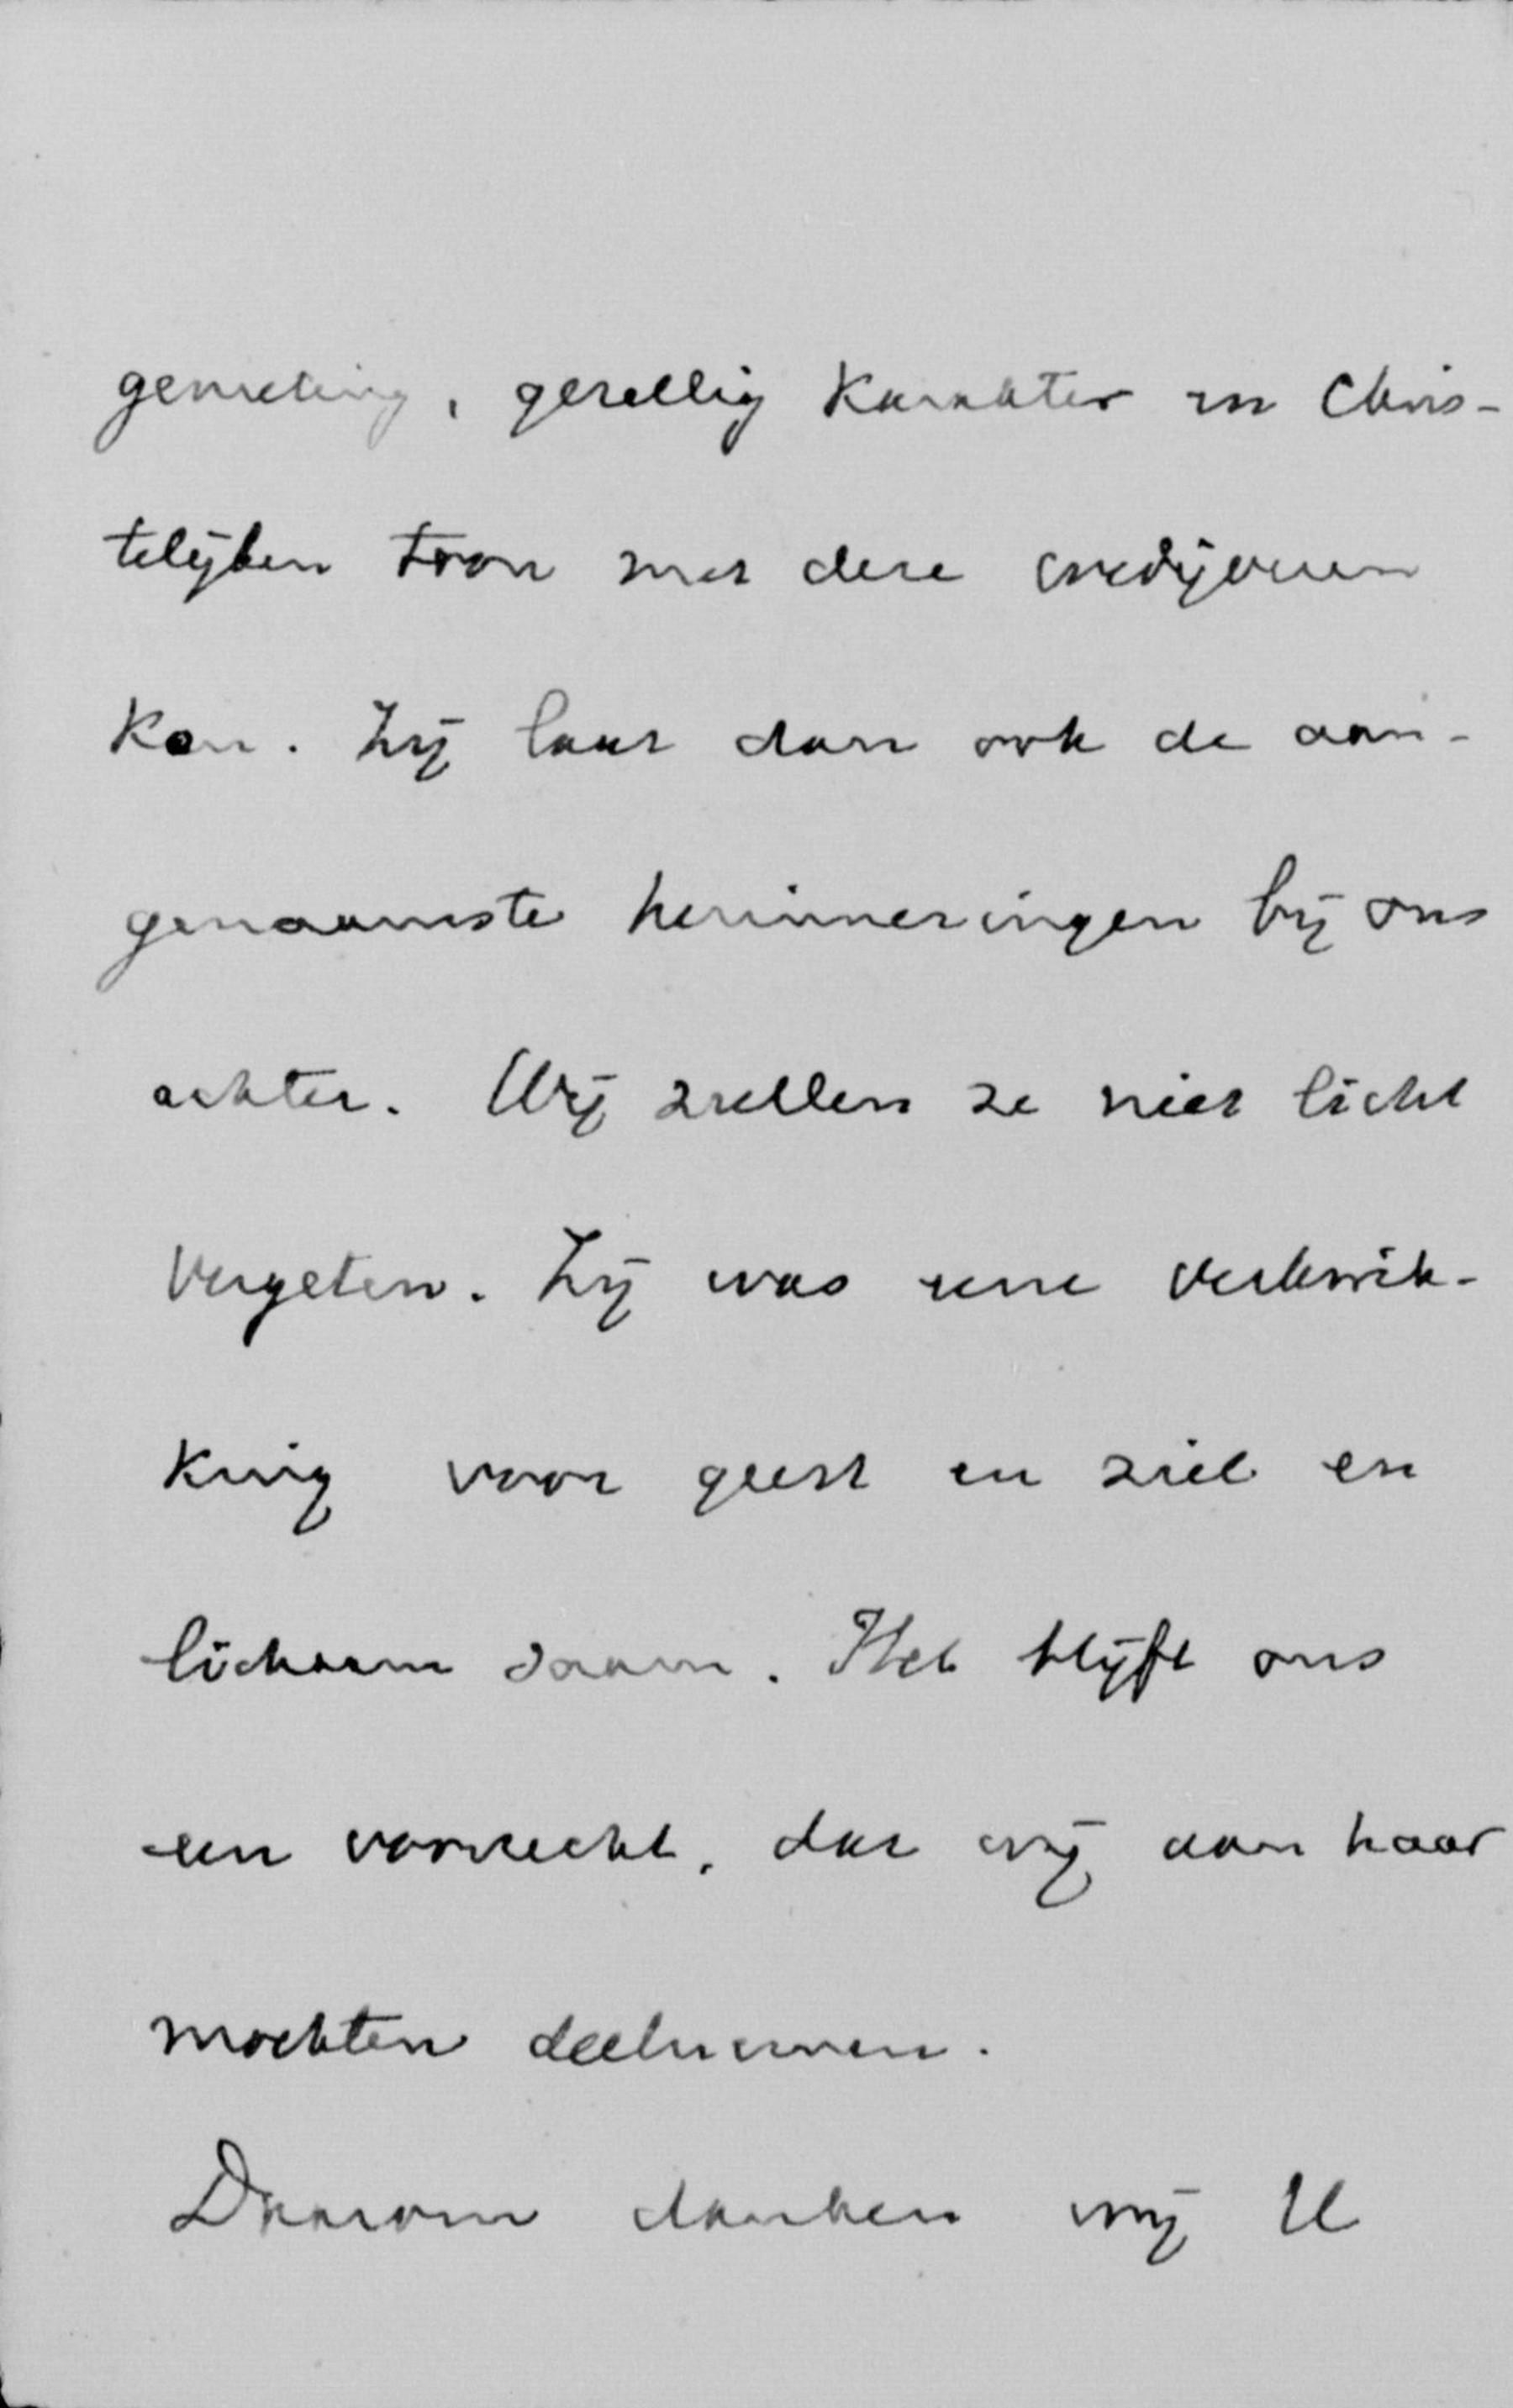 genieting, gezellig karakter en Chris-
telijken toon met deze wedijveren
kon. Zij laat dan ook de aan-
genaamste herinneringen bij ons
achter. Wij zullen ze niet licht
vergeten. Zij was eene verkwik-
king voor geest en ziel en
lichaam saam. Het blijft ons
een voorrecht, dat wij aan haar
mochten deelnemen.
Daarom danken wij U